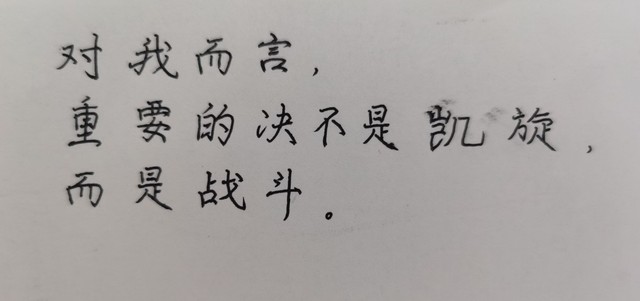 对我而言，
重要的决不是凯旋，
而是战斗。